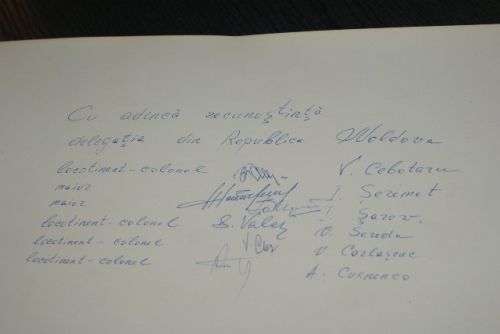 Cu adîncă recunoştinţă
delegaţia din Republica Moldova
locotinent-colonel V. Cebotaru
maior I. Seremet
maior I. Zarov.
locotinent-colonel S. Valez V. Sereda
locotinent-colonel V. Cur V
locotinent-colonel A.